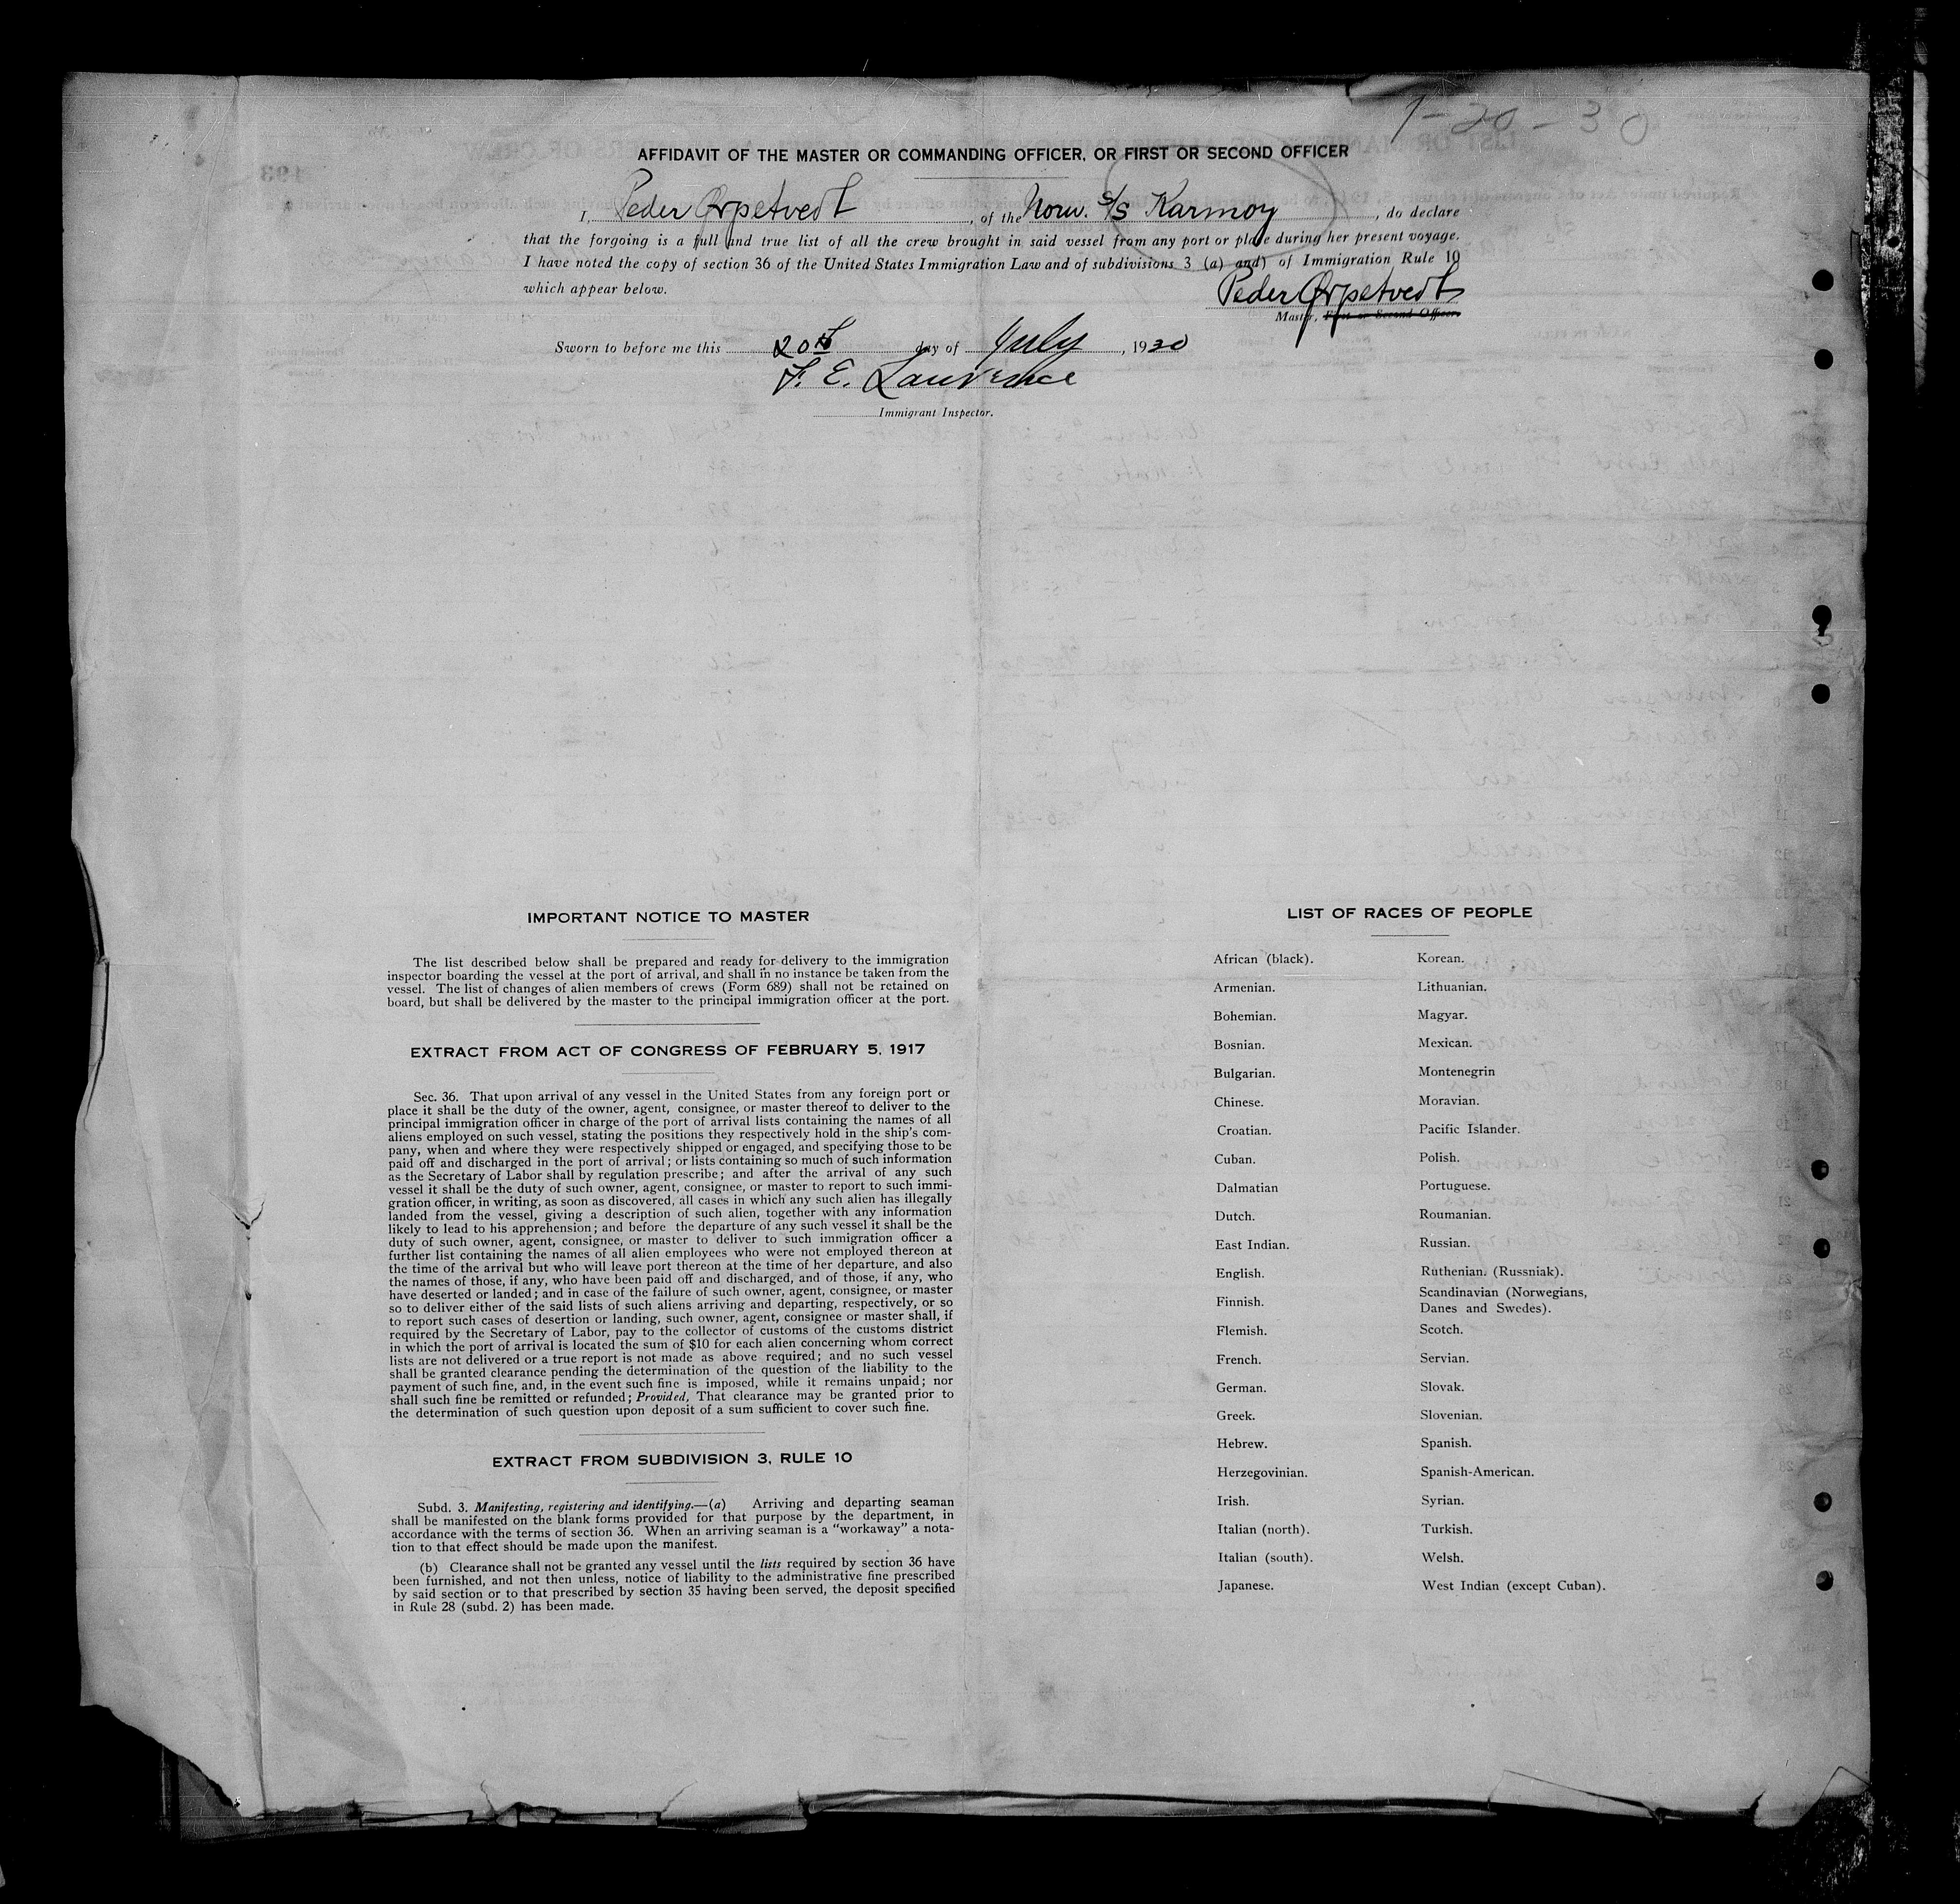 7-20-30
AFFIDAVIT OF THE MASTER OR COMMANDING OFFICER, OR FIRST OR SECOND OFFICER
I, Peder Ørpetvedt, of the Norw. S/S Karmoy, do declare
that the forgoing is a full and true list of all the crew brought in said vessel from any port or place during her present voyage.
I have noted the copy of section 36 of the United States Immigration Law and of subdivisions 3 (a) and) of Immigration Rule 10
which appear below.
Peder Ørpetvedt
Master, First or Second Officer.
Sworn to before me this 20th day of July, 1930
F. E. Lawrence
Immigrant Inspector.
IMPORTANT NOTICE TO MASTER
The list described below shall be prepared and ready for delivery to the immigration
inspector boarding the vessel at the port of arrival, and shall in no instance be taken from the
vessel. The list of changes of alien members of crews (Form 689) shall not be retained on
board, but shall be delivered by the master to the principal immigration officer at the port.
EXTRACT FROM ACT OF CONGRESS OF FEBRUARY 5, 1917
Sec. 36. That upon arrival of any vessel in the United States from any foreign port or
place it shall be the duty of the owner, agent, consignee, or master thereof to deliver to the
principal immigration officer in charge of the port of arrival lists containing the names of all
aliens employed on such vessel, stating the positions they respectively hold in the ship's com-
pany, when and where they were respectively shipped or engaged, and specifying those to be
paid off and discharged in the port of arrival; or lists containing so much of such information
as the Secretary of Labor shall by regulation prescribe; and after the arrival of any such
vessel it shall be the duty of such owner, agent, consignee, or master to report to such immi-
gration officer, in writing, as soon as discovered, all cases in which any such alien has illegally
landed from the vessel, giving a description of such alien, together with any information
likely to lead to his apprehension; and before the departure of any such vessel it shall be the
duty of such owner, agent, consignee, or master to deliver to such immigration officer a
further list containing the names of all alien employees who were not employed thereon at
the time of the arrival but who will leave port thereon at the time of her departure, and also
the names of those, if any, who have been paid off and discharged, and of those, if any, who
have deserted or landed; and in case of the failure of such owner, agent, consignee, or master
so to deliver either of the said lists of such aliens arriving and departing, respectively, or so
to report such cases of desertion or landing, such owner, agent, consignee or master shall, if
required by the Secretary of Labor, pay to the collector of customs of the customs district
in which the port of arrival is located the sum of $10 for each alien concerning whom correct
lists are not delivered or a true report is not made as above required; and no such vessel
shall be granted clearance pending the determination of the question of the liability to the
payment of such fine, and, in the event such fine is imposed, while it remains unpaid; nor
shall such fine be remitted or refunded; Provided, That clearance may be granted prior to
the determination of such question upon deposit of a sum sufficient to cover such fine.
EXTRACT FROM SUBDIVISION 3, RULE 10
Subd. 3. Manifesting, registering and identifying.—(a) Arriving and departing seaman
shall be manifested on the blank forms provided for that purpose by the department, in
accordance with the terms of section 36. When an arriving seaman is a "workaway" a nota-
tion to that effect should be made upon the manifest.
(b) Clearance shall not be granted any vessel until the lists required by section 36 have
been furnished, and not then unless, notice of liability to the administrative fine prescribed
by said section or to that prescribed by section 35 having been served, the deposit specified
in Rule 28 (subd. 2) has been made.
LIST OF RACES OF PEOPLE
African (black).
Armenian.
Bohemian.
Bosnian.
Bulgarian.
Chinese.
Croatian.
Cuban.
Dalmatian
Dutch.
East Indian.
English.
Finnish.
Flemish.
French.
German.
Greek.
Hebrew.
Herzegovinian.
Irish.
Italian (north).
Italian (south).
Japanese.
Korean.
Lithuanian.
Magyar.
Mexican.
Montenegrin
Moravian.
Pacific Islander.
Polish.
Portuguese.
Roumanian.
Russian.
Ruthenian. (Russniak).
Scandinavian (Norwegians,
Danes and Swedes).
Scotch.
Servian.
Slovak.
Slovenian.
Spanish.
Spanish-American.
Syrian.
Turkish.
Welsh.
West Indian (except Cuban).